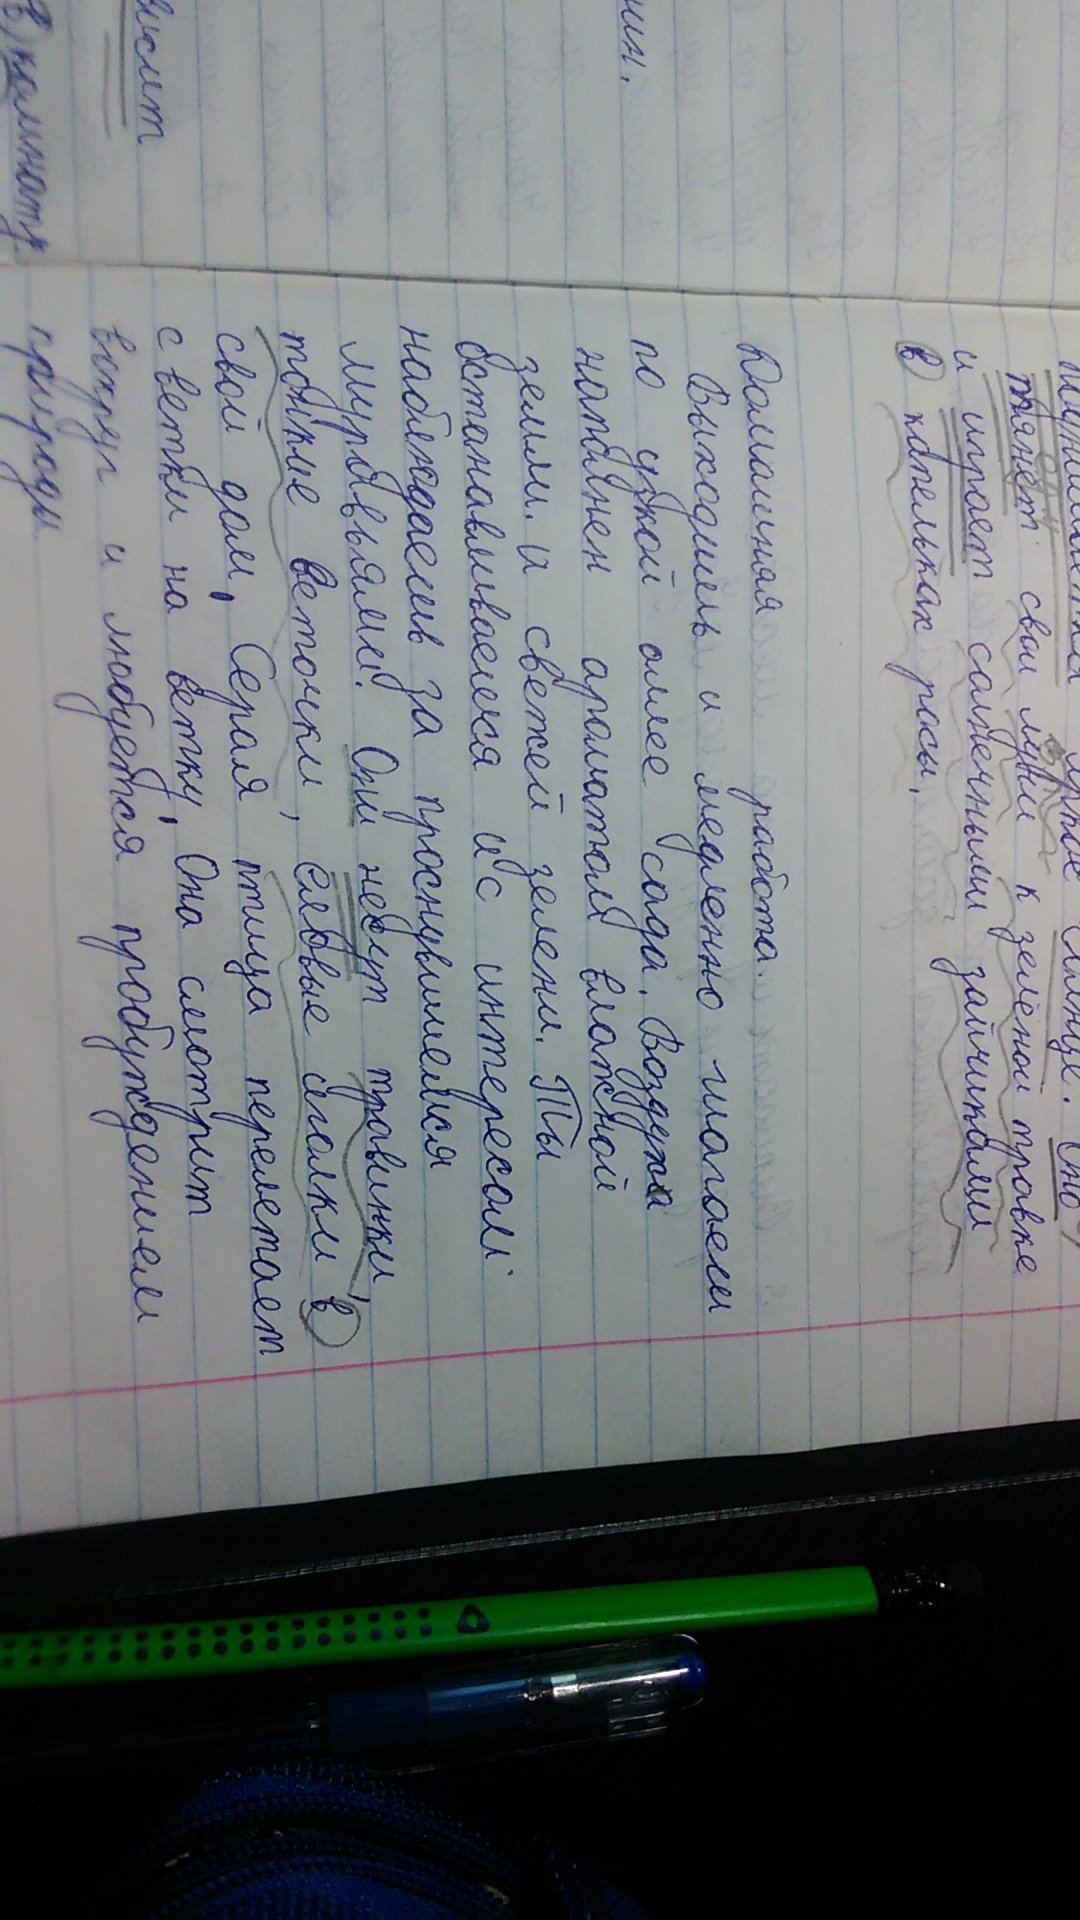 висит
В) комнату
нин.
свои лучи к зелёной травке
и играет солнечными зайчиками
в капельках росы.
Домашняя работа.
Выходишь и медленно шагаем
по узкой аллее сада. Воздух
наполнен ароматом влажной
земли. и свежей зелени. Ты
останавливаешся и с интересом
наблюдаешь за проснувшимися
муравьями. Они несут травинки,
тонкие веточки, еловые иголки в
свой дом. Серая птица перелетает
с ветки на ветку. Она смотрит
вокруг и любуется пробуждением
природы.